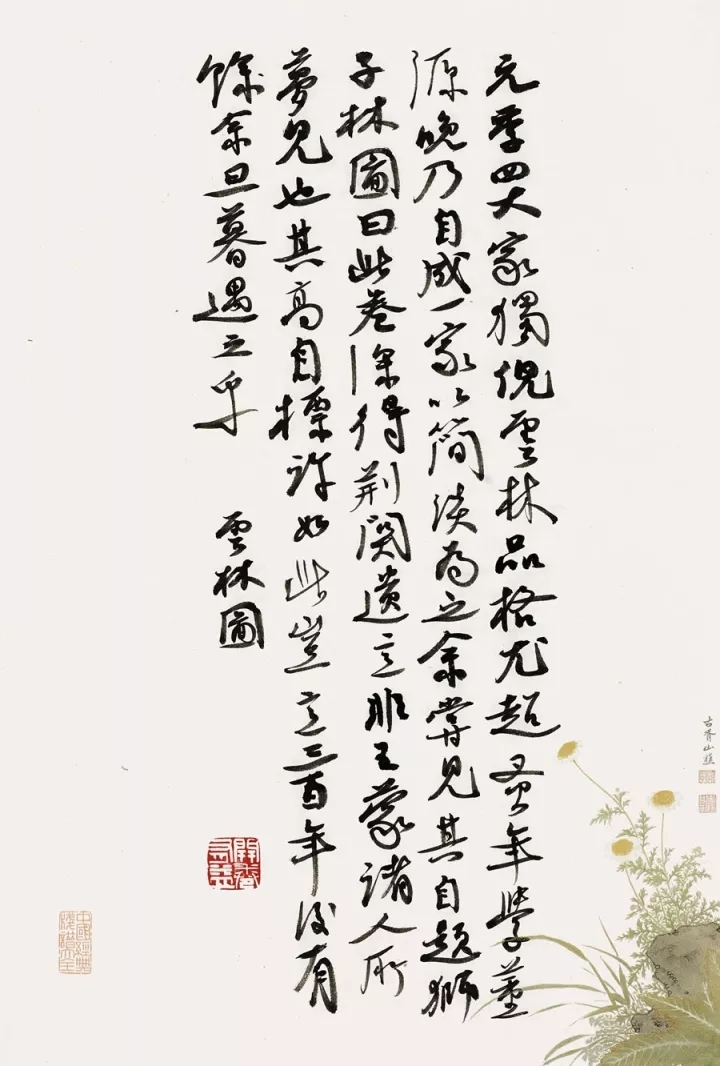 元季四大家獨倪雲林品格尤超蚤年學董
源晚乃自成一家以簡淡為之余嘗見其自題獅
子林圖曰此卷深得荆關遺意非王蒙諸人所
夢見也其高自標許如此豈意三百年後有
餘余旦暮遇之乎
雲林圖